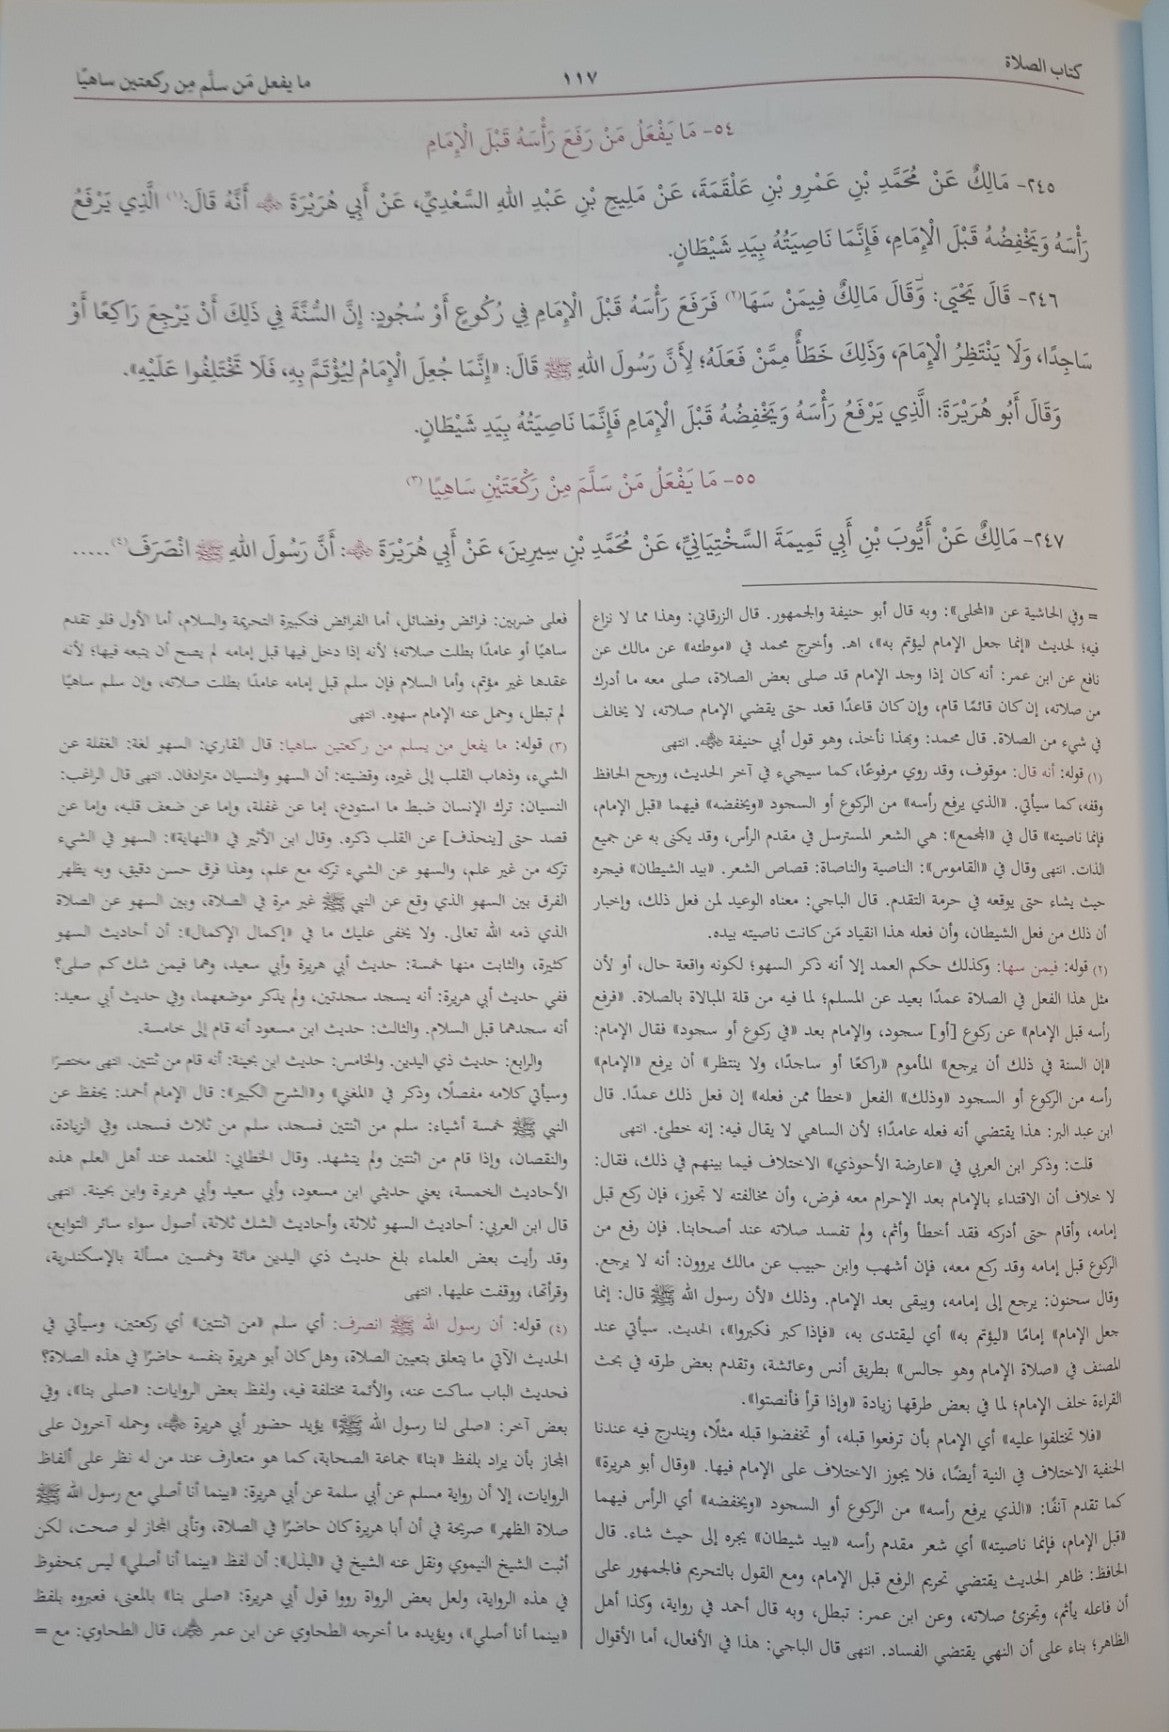 كتاب الصلاة
١١٧
ما يفعل مَن سلَّم مِن ركعتين ساهيًا
٥٤- مَا يَفْعَلُ مَنْ رَفَعَ رَأْسَهُ قَبْلَ الْإِمَامِ
٢٤٥- مَالِكٌ عَنْ مُحَمَّدِ بْنِ عَمْرِو بْنِ عَلْقَمَةَ، عَنْ مَلِيحِ بْنِ عَبْدِ اللهِ السَّعْدِيِّ، عَنْ أَبِي هُرَيْرَةَ ﷺ أَنَّهُ قَالَ:(١) الَّذِي يَرْفَعُ
رَأْسَهُ وَيَخْفِضُهُ قَبْلَ الْإِمَامِ، فَإِنَّمَا نَاصِيَتُهُ بِيَدِ شَيْطَانٍ.
٢٤٦- قَالَ يَحْيَى: وَقَالَ مَالِكٌ فِيمَنْ سَهَا(٢) فَرَفَعَ رَأْسَهُ قَبْلَ الْإِمَامِ فِي رُكُوعٍ أَوْ سُجُودٍ: إِنَّ السُّنَّةَ فِي ذَلِكَ أَنْ يَرْجِعَ رَاكِعًا أَوْ
سَاجِدًا، وَلَا يَنْتَظِرُ الْإِمَامَ، وَذَلِكَ خَطَأٌ مِمَّنْ فَعَلَهُ؛ لِأَنَّ رَسُولَ اللهِ ﷺ قَالَ: «إِنَّمَا جُعِلَ الْإِمَامُ لِيُؤْتَمَّ بِهِ، فَلَا تَخْتَلِفُوا عَلَيْهِ».
وَقَالَ أَبُو هُرَيْرَةَ: الَّذِي يَرْفَعُ رَأْسَهُ وَيَخْفِضُهُ قَبْلَ الْإِمَامِ فَإِنَّمَا نَاصِيَتُهُ بِيَدِ شَيْطَانٍ.
٥٥- مَا يَفْعَلُ مَنْ سَلَّمَ مِنْ رَكْعَتَيْنِ سَاهِيًا (٣)
٢٤٧- مَالِكٌ عَنْ أَيُّوبَ بْنِ أَبِي تَمِيمَةَ السَّخْتِيَانِيِّ، عَنْ مُحَمَّدِ بْنِ سِيرِينَ، عَنْ أَبِي هُرَيْرَةَ: أَنَّ رَسُولَ اللهِ ﷺ انْصَرَفَ(٤) .....
= وفي الحاشية عن «المحلى»: وبه قال أبو حنيفة والجمهور. قال الزرقاني: وهذا مما لا نزاع
فيه؛ لحديث «إنما جعل الإمام ليؤتم به»، اهـ. وأخرج محمد في «موطئه» عن مالك عن
نافع عن ابن عمر: أنه كان إذا وجد الإمام قد صلى بعض الصلاة، صلى معه ما أدرك
من صلاته، إن كان قائمًا قام، وإن كان قاعدًا قعد حتى يقضي الإمام صلاته، لا يخالف
في شيء من الصلاة. قال محمد: وبهذا نأخذ، وهو قول أبي حنيفة. انتهى
(١) قوله: أنه قال: موقوف، وقد روي مرفوعًا، كما سيجيء في آخر الحديث، ورجح الحافظ
وقفه، كما سيأتي. «الذي يرفع رأسه» من الركوع أو السجود «ويخفضه» فيهما «قبل الإمام،
فإنما ناصيته» قال في «المجمع»: هي الشعر المسترسل في مقدم الرأس، وقد يكنى به عن جميع
الذات. انتهى وقال في «القاموس»: الناصية والناصاة: قصاص الشعر. «بيد الشيطان» فيجره
حيث يشاء حتى يوقعه في حرمة التقدم. قال الباجي: معناه الوعيد لمن فعل ذلك، وإخبار
أن ذلك من فعل الشيطان، وأن فعله هذا انقياد مَن كانت ناصيته بيده.
(٢) قوله: فيمن سها: وكذلك حكم العمد إلا أنه ذكر السهو؛ لكونه واقعة حال، أو لأن
مثل هذا الفعل في الصلاة عمدًا بعيد عن المسلم؛ لما فيه من قلة المبالاة بالصلاة. «فرفع
رأسه قبل الإمام» عن ركوع [أو] سجود، والإمام بعد «في ركوع أو سجود» فقال الإمام:
«إن السنة في ذلك أن يرجع» المأموم «راكعًا أو ساجدًا، ولا ينتظر» أن يرفع «الإمام»
رأسه من الركوع أو السجود «وذلك» الفعل «خطأ ممن فعله» إن فعل ذلك عمدًا. قال
ابن عبد البر: هذا يقتضي أنه فعله عامدًا؛ لأن الساهي لا يقال فيه: إنه خطئ. انتهى
قلت: وذكر ابن العربي في «عارضة الأحوذي» الاختلاف فيما بينهم في ذلك، فقال:
لا خلاف أن الاقتداء بالإمام بعد الإحرام معه فرض، وأن مخالفته لا تجوز، فإن ركع قبل
إمامه، وأقام حتى أدركه فقد أخطأ وأثم، ولم تفسد صلاته عند أصحابنا. فإن رفع من
الركوع قبل إمامه وقد ركع معه، فإن أشهب وابن حبيب عن مالك يروون: أنه لا يرجع.
وقال سحنون: يرجع إلى إمامه، ويبقى بعد الإمام. وذلك «لأن رسول الله ﷺ قال: إنما
جعل الإمام» إمامًا «ليؤتم به» أي ليقتدى به، «فإذا كبر فكبروا»، الحديث. سيأتي عند
المصنف في «صلاة الإمام وهو جالس» بطريق أنس وعائشة، وتقدم بعض طرقه في بحث
القراءة خلف الإمام؛ لما في بعض طرقها زيادة «وإذا قرأ فأنصتوا».
«فلا تختلفوا عليه» أي الإمام بأن ترفعوا قبله، أو تخفضوا قبله مثلًا، ويندرج فيه عندنا
الحنفية الاختلاف في النية أيضًا، فلا يجوز الاختلاف على الإمام فيها. «وقال أبو هريرة»
كما تقدم آنفًا: «الذي يرفع رأسه» من الركوع أو السجود «ويخفضه» أي الرأس فيهما
«قبل الإمام، فإنما ناصيته» أي شعر مقدم رأسه «بيد شيطان» يجره إلى حيث شاء. قال
الحافظ: ظاهر الحديث يقتضي تحريم الرفع قبل الإمام، ومع القول بالتحريم فالجمهور على
أن فاعله يأثم، وتجزئ صلاته، وعن ابن عمر: تبطل، وبه قال أحمد في رواية، وكذا أهل
الظاهر؛ بناء على أن النهي يقتضي الفساد. انتهى قال الباجي: هذا في الأفعال، أما الأقوال
فعلى ضربين: فرائض وفضائل، أما الفرائض فتكبيرة التحريمة والسلام، أما الأول فلو تقدم
ساهيًا أو عامدًا بطلت صلاته؛ لأنه إذا دخل فيها قبل إمامه لم يصح أن يتبعه فيها؛ لأنه
عقدها غير مؤتم، وأما السلام فإن سلم قبل إمامه عامدًا بطلت صلاته، وإن سلم ساهيًا
لم تبطل، وحمل عنه الإمام سهوه. انتهى
(٣) قوله: ما يفعل من يسلم من ركعتين ساهيا: قال القاري: السهو لغة: الغفلة عن
الشيء، وذهاب القلب إلى غيره، وقضيته: أن السهو والنسيان مترادفان. انتهى قال الراغب:
النسيان: ترك الإنسان ضبط ما استودع، إما عن غفلة، وإما عن ضعف قلبه، وإما عن
قصد حتى [ينحذف] عن القلب ذكره. وقال ابن الأثير في «النهاية»: السهو في الشيء
تركه من غير علم، والسهو عن الشيء تركه مع علم، وهذا فرق حسن دقيق، وبه يظهر
الفرق بين السهو الذي وقع عن النبي ﷺ غير مرة في الصلاة، وبين السهو عن الصلاة
الذي ذمه الله تعالى. ولا يخفى عليك ما في «إكمال الإكمال»: أن أحاديث السهو
كثيرة، والثابت منها خمسة: حديث أبي هريرة وأبي سعيد، وهما فيمن شك كم صلى؟
ففي حديث أبي هريرة: أنه يسجد سجدتين، ولم يذكر موضعهما، وفي حديث أبي سعيد:
أنه سجدهما قبل السلام. والثالث: حديث ابن مسعود أنه قام إلى خامسة.
والرابع: حديث ذي اليدين. والخامس: حديث ابن بحينة: أنه قام من ثنتين. انتهى مختصرًا
وسيأتي كلامه مفصلًا، وذكر في «المغني» و«الشرح الكبير»: قال الإمام أحمد: يحفظ عن
النبي ﷺ خمسة أشياء: سلم من اثنتين فسجد، سلم من ثلاث فسجد، وفي الزيادة،
والنقصان، وإذا قام من اثنتين ولم يتشهد. وقال الخطابي: المعتمد عند أهل العلم هذه
الأحاديث الخمسة، يعني حديثي ابن مسعود، وأبي سعيد وأبي هريرة وابن بحينة. انتهى
قال ابن العربي: أحاديث السهو ثلاثة، وأحاديث الشك ثلاثة، أصول سواء سائر التوابع،
وقد رأيت بعض العلماء بلغ حديث ذي اليدين مائة وخمسين مسألة بالإسكندرية،
وقرأتها، ووقفت عليها. انتهى
(٤) قوله: أن رسول الله ﷺ انصرف: أي سلم «من اثنتين» أي ركعتين، وسيأتي في
الحديث الآتي ما يتعلق بتعيين الصلاة، وهل كان أبو هريرة بنفسه حاضرًا في هذه الصلاة؟
فحديث الباب ساكت عنه، والأئمة مختلفة فيه، ولفظ بعض الروايات: «صلى بنا»، وفي
بعض آخر: «صلى لنا رسول الله ﷺ» يؤيد حضور أبي هريرة، وحمله آخرون على
المجاز بأن يراد بلفظ «بنا» جماعة الصحابة، كما هو متعارف عند من له نظر على ألفاظ
الروايات، إلا أن رواية مسلم عن أبي سلمة عن أبي هريرة: «بينما أنا أصلي مع رسول الله ﷺ
صلاة الظهر» صريحة في أن أبا هريرة كان حاضرًا في الصلاة، وتأبى المجاز لو صحت، لكن
أثبت الشيخ النيموي ونقل عنه الشيخ في «البذل»: أن لفظ «بينما أنا أصلي» ليس بمحفوظ
في هذه الرواية، ولعل بعض الرواة رووا قول أبي هريرة: «صلى بنا» بالمعنى، فعبروه بلفظ
«بينما أنا أصلي»، ويؤيده ما أخرجه الطحاوي عن ابن عمر، قال الطحاوي: مع =